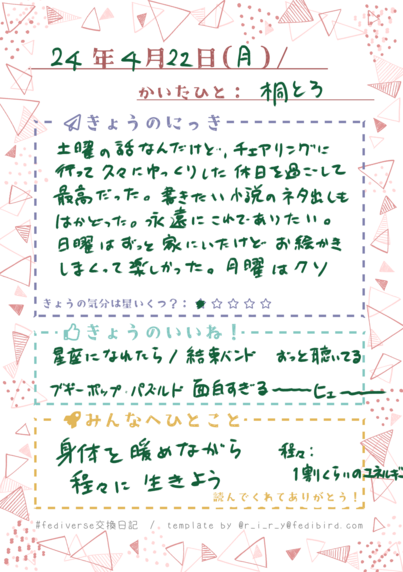 24年4月22日(月)/
かいたひと: 桐とろ
きょうのにっき
土曜の話なんだけど、チェアリングに
行って久々にゆっくりした休日を過ごして
最高だった。書きたい小説のネタ出しも
はかどった。永遠にこれでありたい。
日曜はずっと家にいたけどお絵かき
しまくって楽しかった。月曜はクソ
きょうの気分は星いくつ?: ★☆☆☆☆
きょうのいいね!
星座になれたら / 結束バンド ずっと聴いてる
ブギーポップ・パズルド 面白すぎる〜〜〜ヒュ〜〜
みんなへひとこと
身体を暖めながら
程々に生きよう
程々:
1割くらいのエネルギー
読んでくれてありがとう!
#fediverse交換日記 /. template by @r_i_r_y@fedibird.com